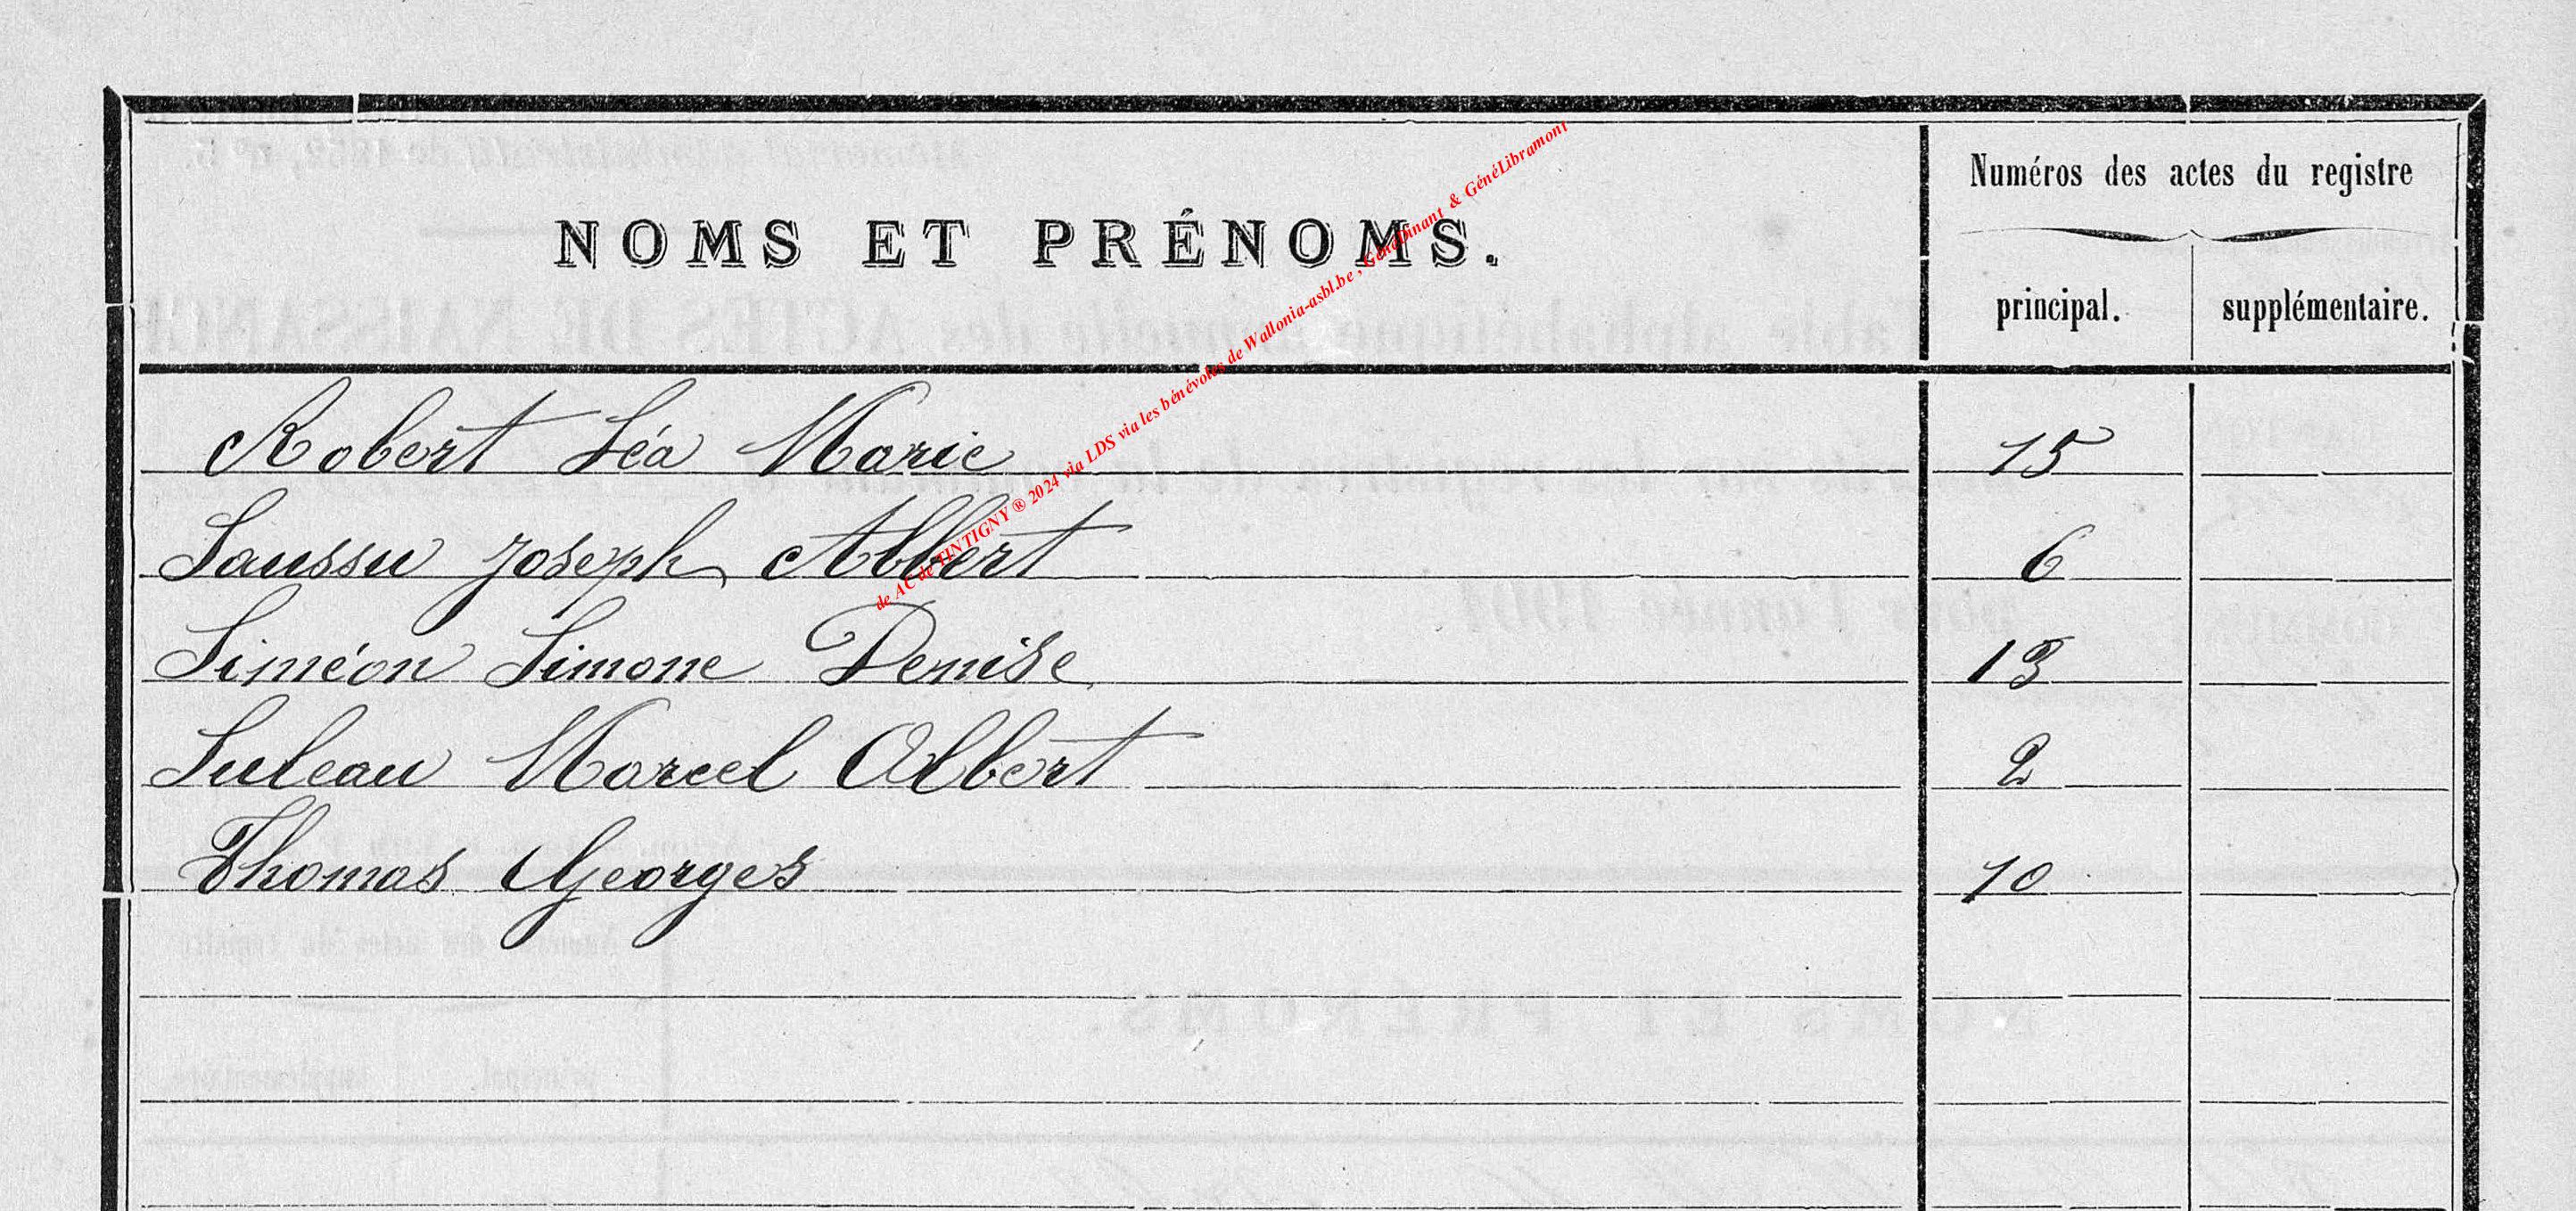 NOMS ET PRÉNOMS.
Numéros des actes du registre
principal. supplémentaire.
Robert Léa Marie 15
Saussu Joseph Albert 6
Siméon Simone Denise 13
Suleau Marcel Albert 2
Thomas Georges 10
de AC de TINTIGNY ® 2024 via LDS via les bénévoles de Wallonia-asbl.be, GénéDinant & GénéLibramont